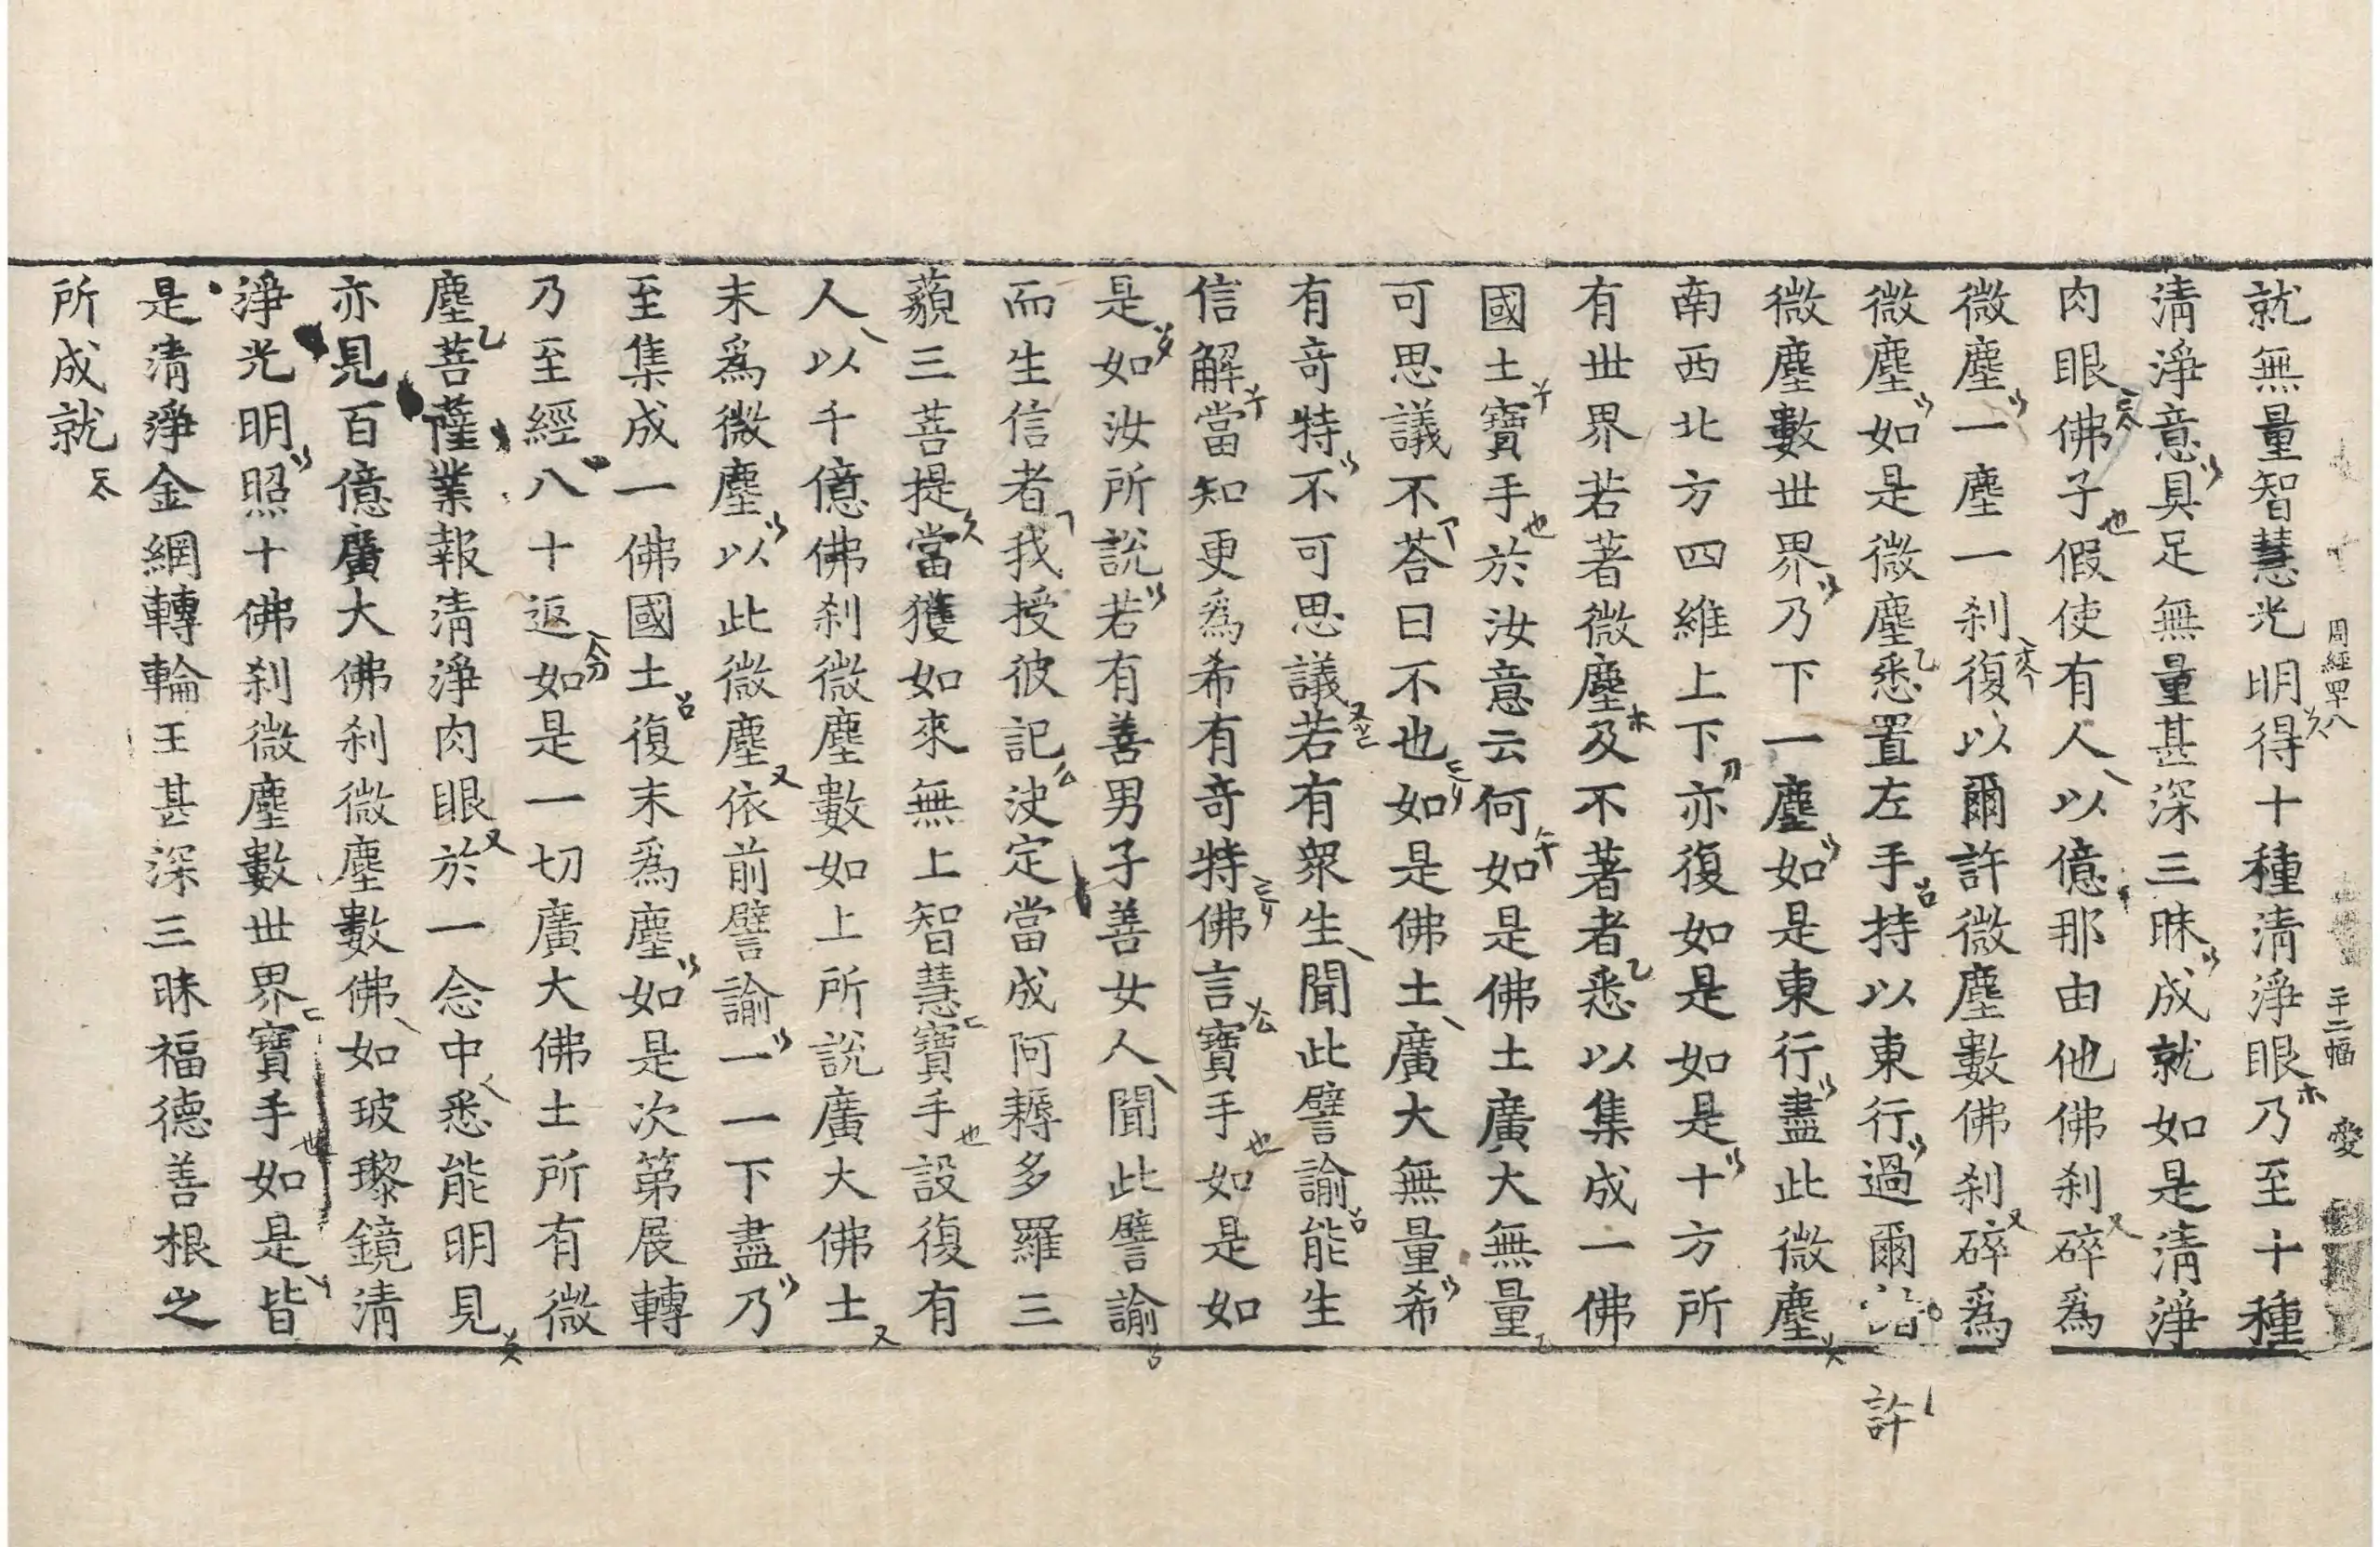 就無量智慧光明得十種清淨眼乃至十種
周經四十八 二十二幅 愛
清淨意具足無量甚深三昧成就如是清淨
肉眼佛子假使有人以億那由他佛刹碎爲
微塵一塵一刹復以爾許微塵數佛刹碎爲
微塵如是微塵悉置左手持以東行過爾
許
微塵數世界乃下一塵如是東行盡此微塵
南西北方四維上下亦復如是如是十方所
有世界若著微塵及不著者悉以集成一佛
國土寶手於汝意云何如是佛土廣大無量
可思議不荅曰不也如是佛土廣大無量希
有奇特不可思議若有衆生聞此譬諭能生
信解當知更爲希有奇特佛言寶手如是如
是如汝所説若有善男子善女人聞此譬諭
而生信者我授彼記決定當成阿耨多羅三
藐三菩提當獲如來無上智慧寶手設復有
人以千億佛刹微塵數如上所説廣大佛土
末爲微塵以此微塵依前譬諭一一下盡乃
至集成一佛國土復末爲塵如是次第展轉
乃至經八十返如是一切廣大佛土所有微
塵菩薩業報清淨肉眼於一念中悉能明見
亦見百億廣大佛刹微塵數佛如玻瓈鏡清
淨光明照十佛刹微塵數世界寶手如是皆
是清淨金網轉輪王甚深三昧福德善根之
所成就